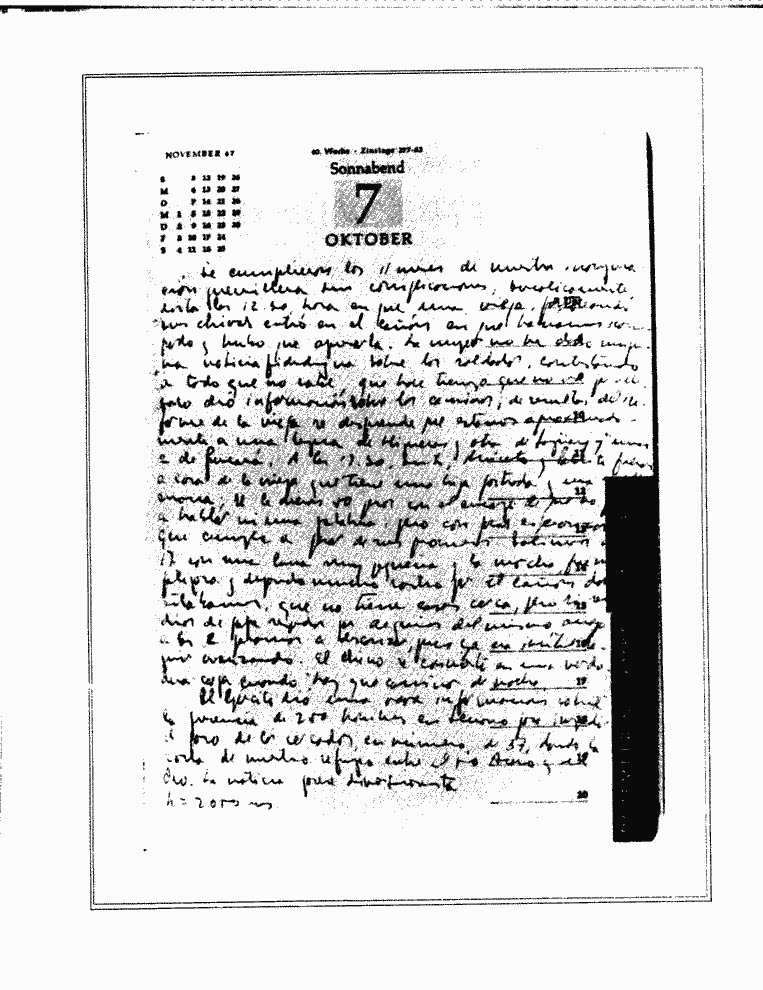 NOVEMBER 67
40. Woche · Zinstage 277-83
Sonnabend
7
OKTOBER
S 5 12 19 26
M 6 13 20 27
D 7 14 21 28
M 1 8 15 22 29
D 2 9 16 23 30
F 3 10 17 24
S 4 11 18 25
Se cumplieron los 11 meses de nuestra inaugura
ción guerrillera sin complicaciones, bucólicamente
hasta las 12.30 hora en que una vieja, pastoreando
sus chivas entró en el cañón en que habíamos acam
pado y hubo que apresarla. La mujer no ha dado ningu
na noticia fidedigna sobre los soldados, contestando
a todo que no sabe, que hace tiempo que no va por allí
solo dió información sobre los caminos; de resultas del in
forme de la vieja se desprende que estamos aproximada-
mente a una legua de Higueras y otra de Jaguey y unas
2 de Pucará. A las 17.30, Inti, Aniceto y Pablito fueron
a casa de la vieja que tiene una hija postrada y una
enana; se le dieron 50 pesos con el encargo de
a hablar ni una palabra, pero con pocas esperanzas
que cumpla a pesar de sus promesas. Salimos
17 con una luna muy pequeña y la marcha fue
y dejando mucho rastro por el cañon don
estabamos, que no tiene casas cerca, pero
dios de papa regados por acequias del mismo arroyo
a las 2 paramos a descansar, pues ya era inutil se
guir avanzando. El chino se convierte en una verda
dera carga cuando hay que caminar de noche.
El Ejército dió una rara información sobre
la presencia de 250 hombres en Serrano para impedir
el paso de los cercados, en número, de 37, dando la
zona de nuestro refugio entre el río Acero y el
Oro. La noticia parece diversionista
h = 2000 ms
12
13
15
19
20